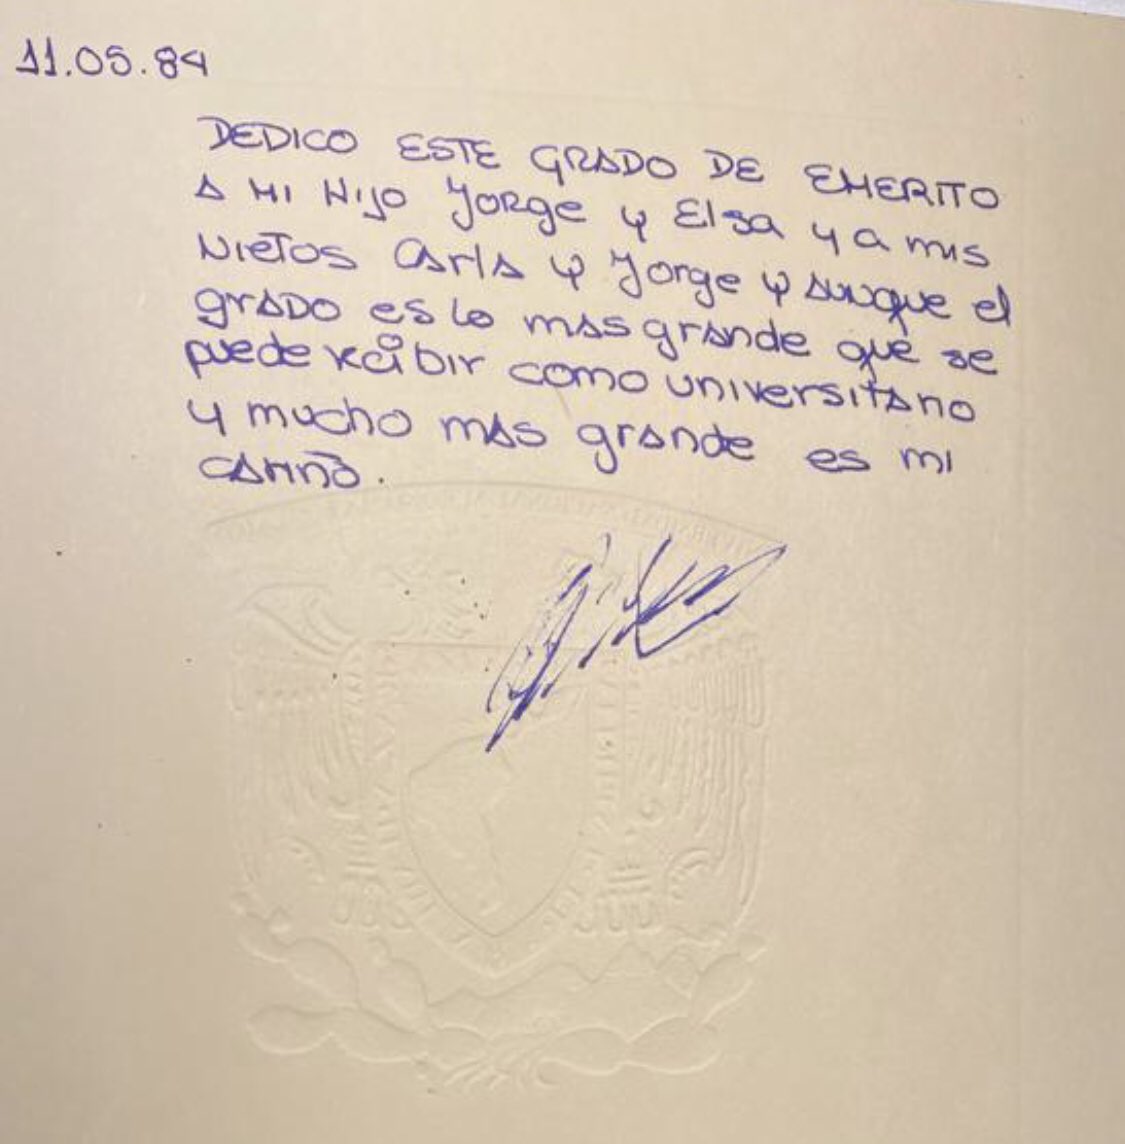 11.05.84
DEDICO ESTE GRADO DE EMERITO
A MI HIJO Jorge y Elsa y a mis
Nietos Carla y Jorge y aunque el
grado es lo mas grande que se
puede recibir como universitario
y mucho mas grande es mi
cariño.